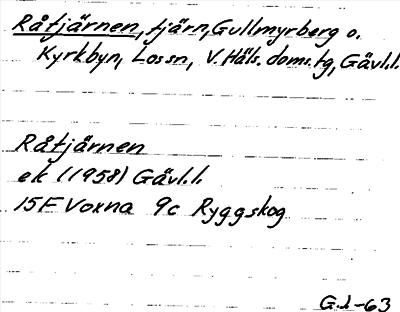 Råtjärnen, tjärn, Gullmyrberg o.
Kyrkbyn, Lossn, V. Häls. doms.tg, Gävl.l.
Råtjärnen
ek (1958) Gävl.l.
15F Voxna 9c Ryggskog
G.l-63